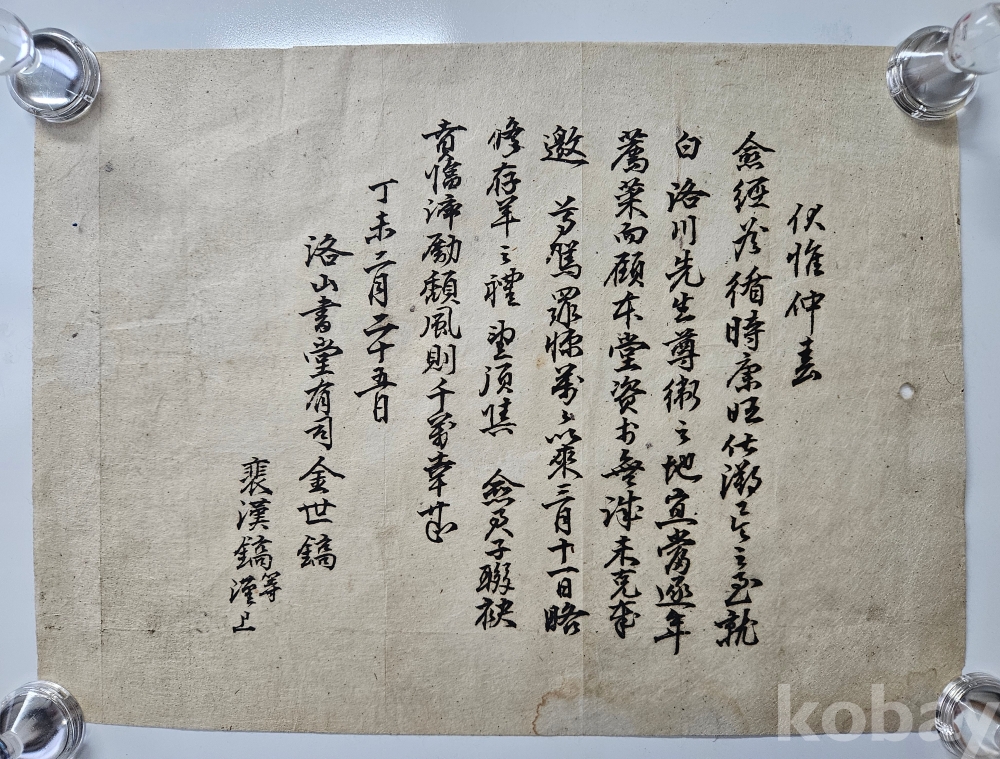 伏惟仲春
僉經履循時康旺伏溯區區之至就
白 洛川先生尊衛之地宜當逐年
薦榮而顧本堂資力無誠未克奉
邀 尊駕罪悚萬萬以來三月十一日略
修存羊之禮 望須賁 僉員子聯袂
齊 勵頹風則千萬幸甚
丁未二月二十五日
洛山書堂有司金世鎬
裵漢鎬等
謹上
kobay